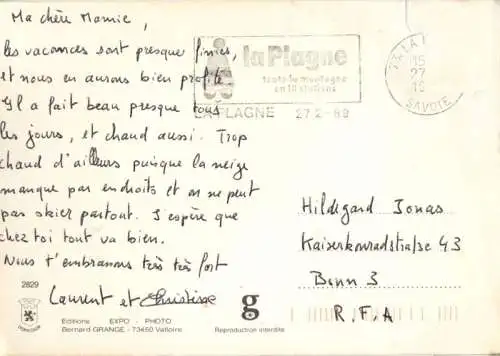 Ma chère Mamie,
les vacances sont presque finies,
et nous en aurons bien profité
Il a fait beau presque tous
les jours, et chaud aussi. Trop
chaud d'ailleurs puisque la neige
manque par endroits et on ne peut
pas skier partout. J'espère que
chez toi tout va bien.
Nous t'embrassons très très fort
Laurent et Christine
la Plagne
toute la montagne
en 10 stations
LA PLAGNE 27-2-89
15
27
SAVOIE
Hildegard Jonas
Kaiserkonradstraße 43
Bonn 3
R.F.A
2829
Editions EXPO - PHOTO
Bernard GRANGE - 73450 Valloire
g
Reproduction interdite